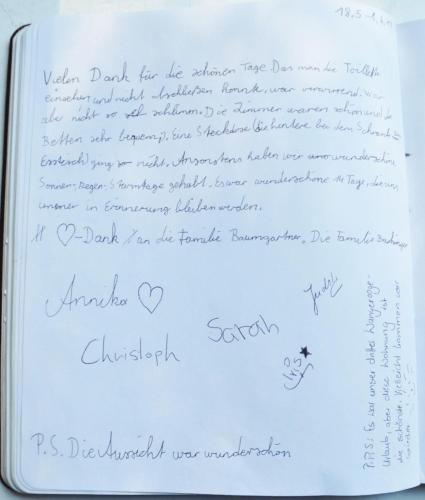 18.5-1.
Vielen Dank für die schönen Tage. Das man die Toilette
einsehen und nicht abschließen konnte, war verwirrend. War
aber nicht so schlimm. Die Zimmer waren schön und die
Betten sehr bequem. Eine Steckdose (die hintere bei dem Schrank
Esstisch) ging nicht. Ansonsten haben wir wunderschöne
Sonnen-, Regen-, Sturmtage gehabt. Es war wunderschöne 14 Tage, die uns
immer in Erinnerung bleiben werden.
♡-Dank an die Familie Baumgartner. Die Familie
Annika ♡
Judith
Sarah
Christoph
Iris ★
P.S. Die Aussicht war wunderschön
P.P.S: Es war unser drittes Wangerooge-
Urlaub, aber diese Wohnung ist
die schönste. Vielleicht kommen wir
wieder